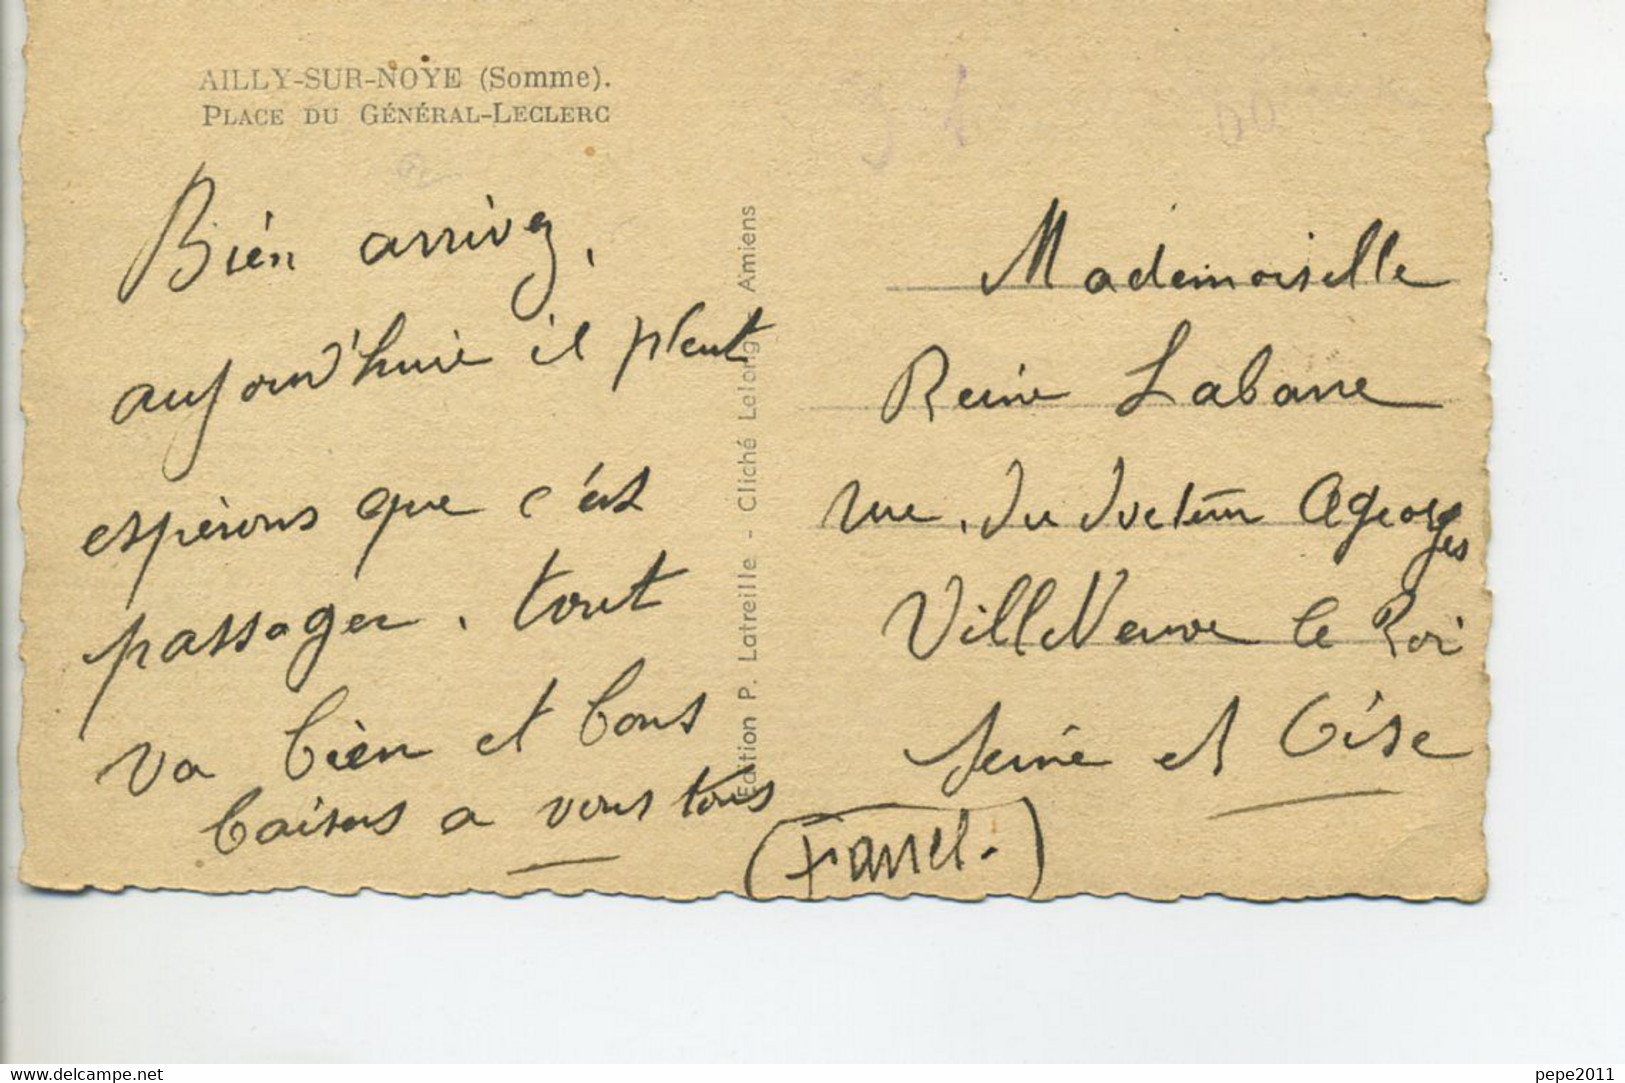 AILLY-SUR-NOYE (Somme).
PLACE DU GÉNÉRAL-LECLERC
Bien arrivez,
aujourd'huie il pleut
espérons que c'est
passager. tout
va bien et bons
baisers a vous tous
Edition P. Latreille - Cliché Lelong, Amiens
Mademoiselle
Reine Labarre
rue du docteur Ageorges
VillNeuve le Roi
Seine et Oise
www.delcampe.net
pepe2011